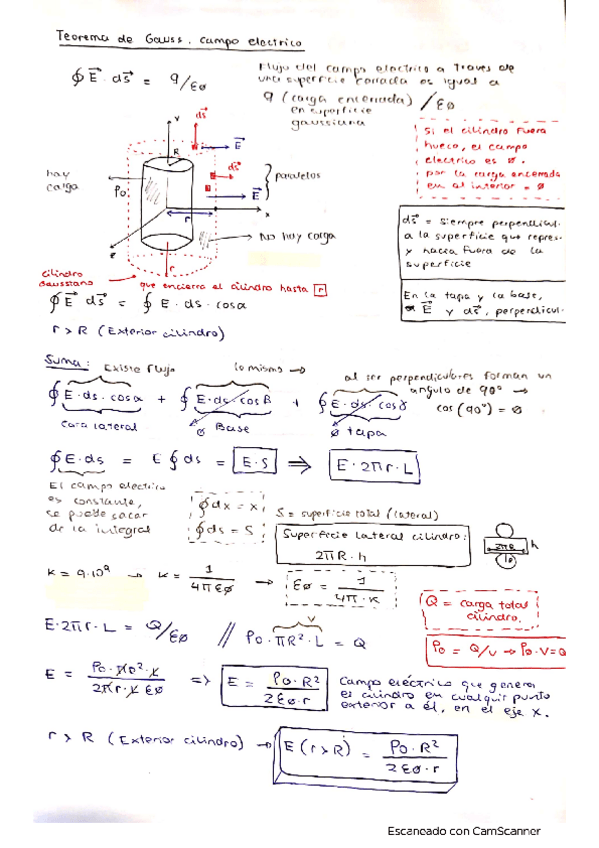 Teorema de Gauss. campo electrico
∮ E⃗ · ds⃗ = q/εø
Flujo del campo electrico a traves de
una superficie cerrada es igual a
q (carga encerrada) / εø
en superficie
gaussiana
Si el cilindro fuera
hueco, el campo
electrico es ø.
por la carga encerrada
en al interior = ø
ds⃗
Y
R
E⃗
ds⃗
hay
carga
ρo
E⃗
paralelos
r
x
z
No hay carga
r
ds⃗ = Siempre perpendicul.
a la superficie que repres-
y hacia fuera de la
superficie
cilindro
Gaussiano
que encierra el cilindro hasta r
En la tapa y la base,
E⃗ y ds⃗, perpendicul.
∮ E⃗ ds⃗ = ∮ E · ds · cosα
r > R (Exterior cilindro)
Suma: Existe flujo
lo mismo →
al ser perpendiculares forman un
angulo de 90° →
cos (90°) = ø
∮ E·ds·cosα + ∮ E·ds·cosβ + ∮ E·ds·cosγ
cara lateral
ø Base
ø tapa
∮ E·ds = E ∮ ds = E·S ⇒ E·2πr·L
El campo electrico
es constante,
se puede sacar
de la integral
∮ dx = x
∮ ds = S
S = superficie total (lateral)
Superficie lateral cilindro:
2πR·h
2πR
h
K = 9·10⁹ → K = 1/4πεø → εø = 1/4π·K
Q = carga total
cilindro.
E·2πr·L = Q/εø // ρo·πR²·L = Q
V
ρo = Q/V → ρo·V=Q
E = ρo·πR²·L / 2πr·L εø ⇒ E = ρo·R² / 2εø·r
Campo eléctrico que genera
el cilindro en cualquir punto
exterior a él, en el eje x.
r > R (Exterior cilindro) → E (r>R) = ρo·R² / 2εø·r
Escaneado con CamScanner